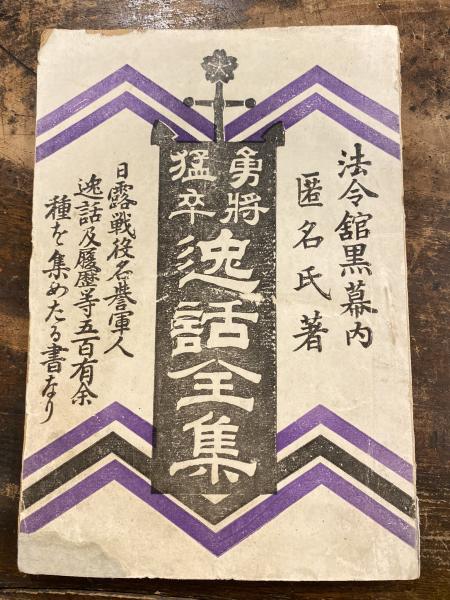 法令舘黒幕内
匿名氏著
勇将
猛卒
逸話全集
日露戦役名誉軍人
逸話及履歴等五百有余
種を集めたる書なり